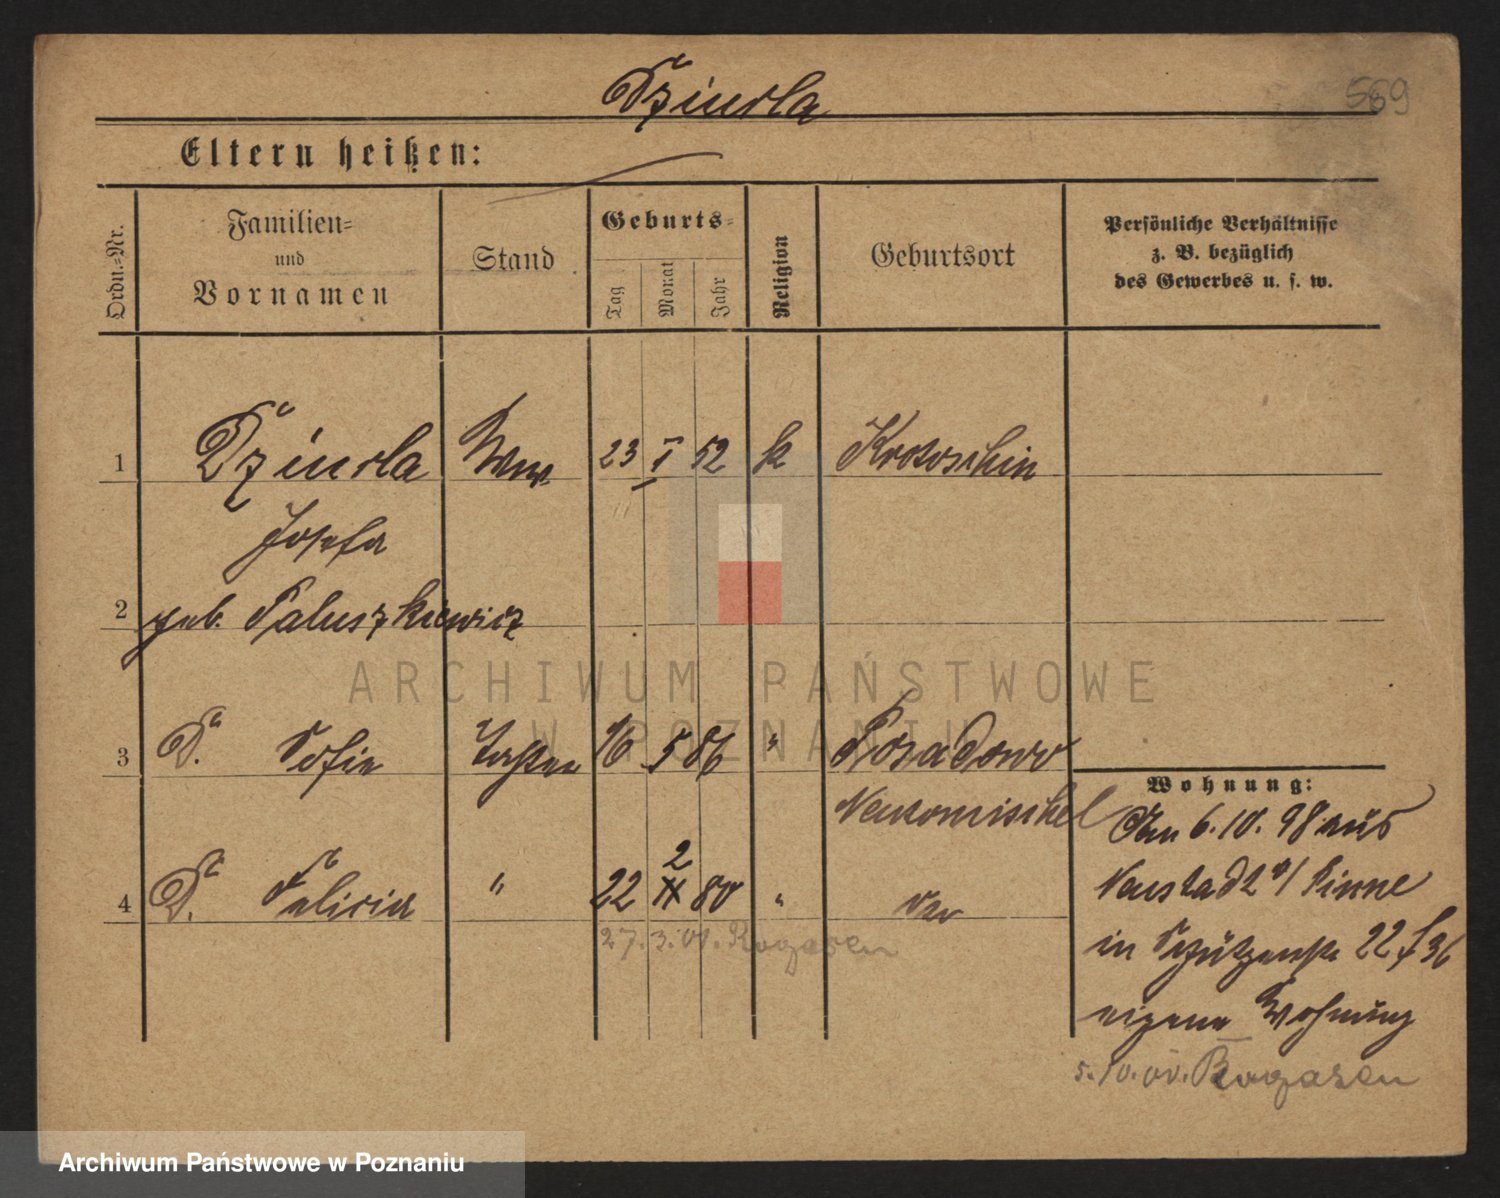 Dziurla
569
Eltern heißen:
Ordn.-Nr.
Familien-
und
Vornamen
Stand
Geburts-
Tag
Monat
Jahr
Religion
Geburtsort
Persönliche Verhältnisse
z. B. bezüglich
des Gewerbes u. s. w.
1 Dziurla Wwe 23 I 52 k Krotoschin
Josefa
2 geb. Paluszkiewicz
3 D. Sofie Tochter 16 5 86 " Posadowo
Neutomischel
Wohnung:
Am 6.10.98 aus
4 D. Felicia " 22 2 80 "
Neustadt b/ Pinne
27.3.01. Rogasen
in Schützenstr 22
eigene Wohnung
5.10.00. Rogasen
ARCHIWUM PAŃSTWOWE
W POZNANIU
Archiwum Państwowe w Poznaniu